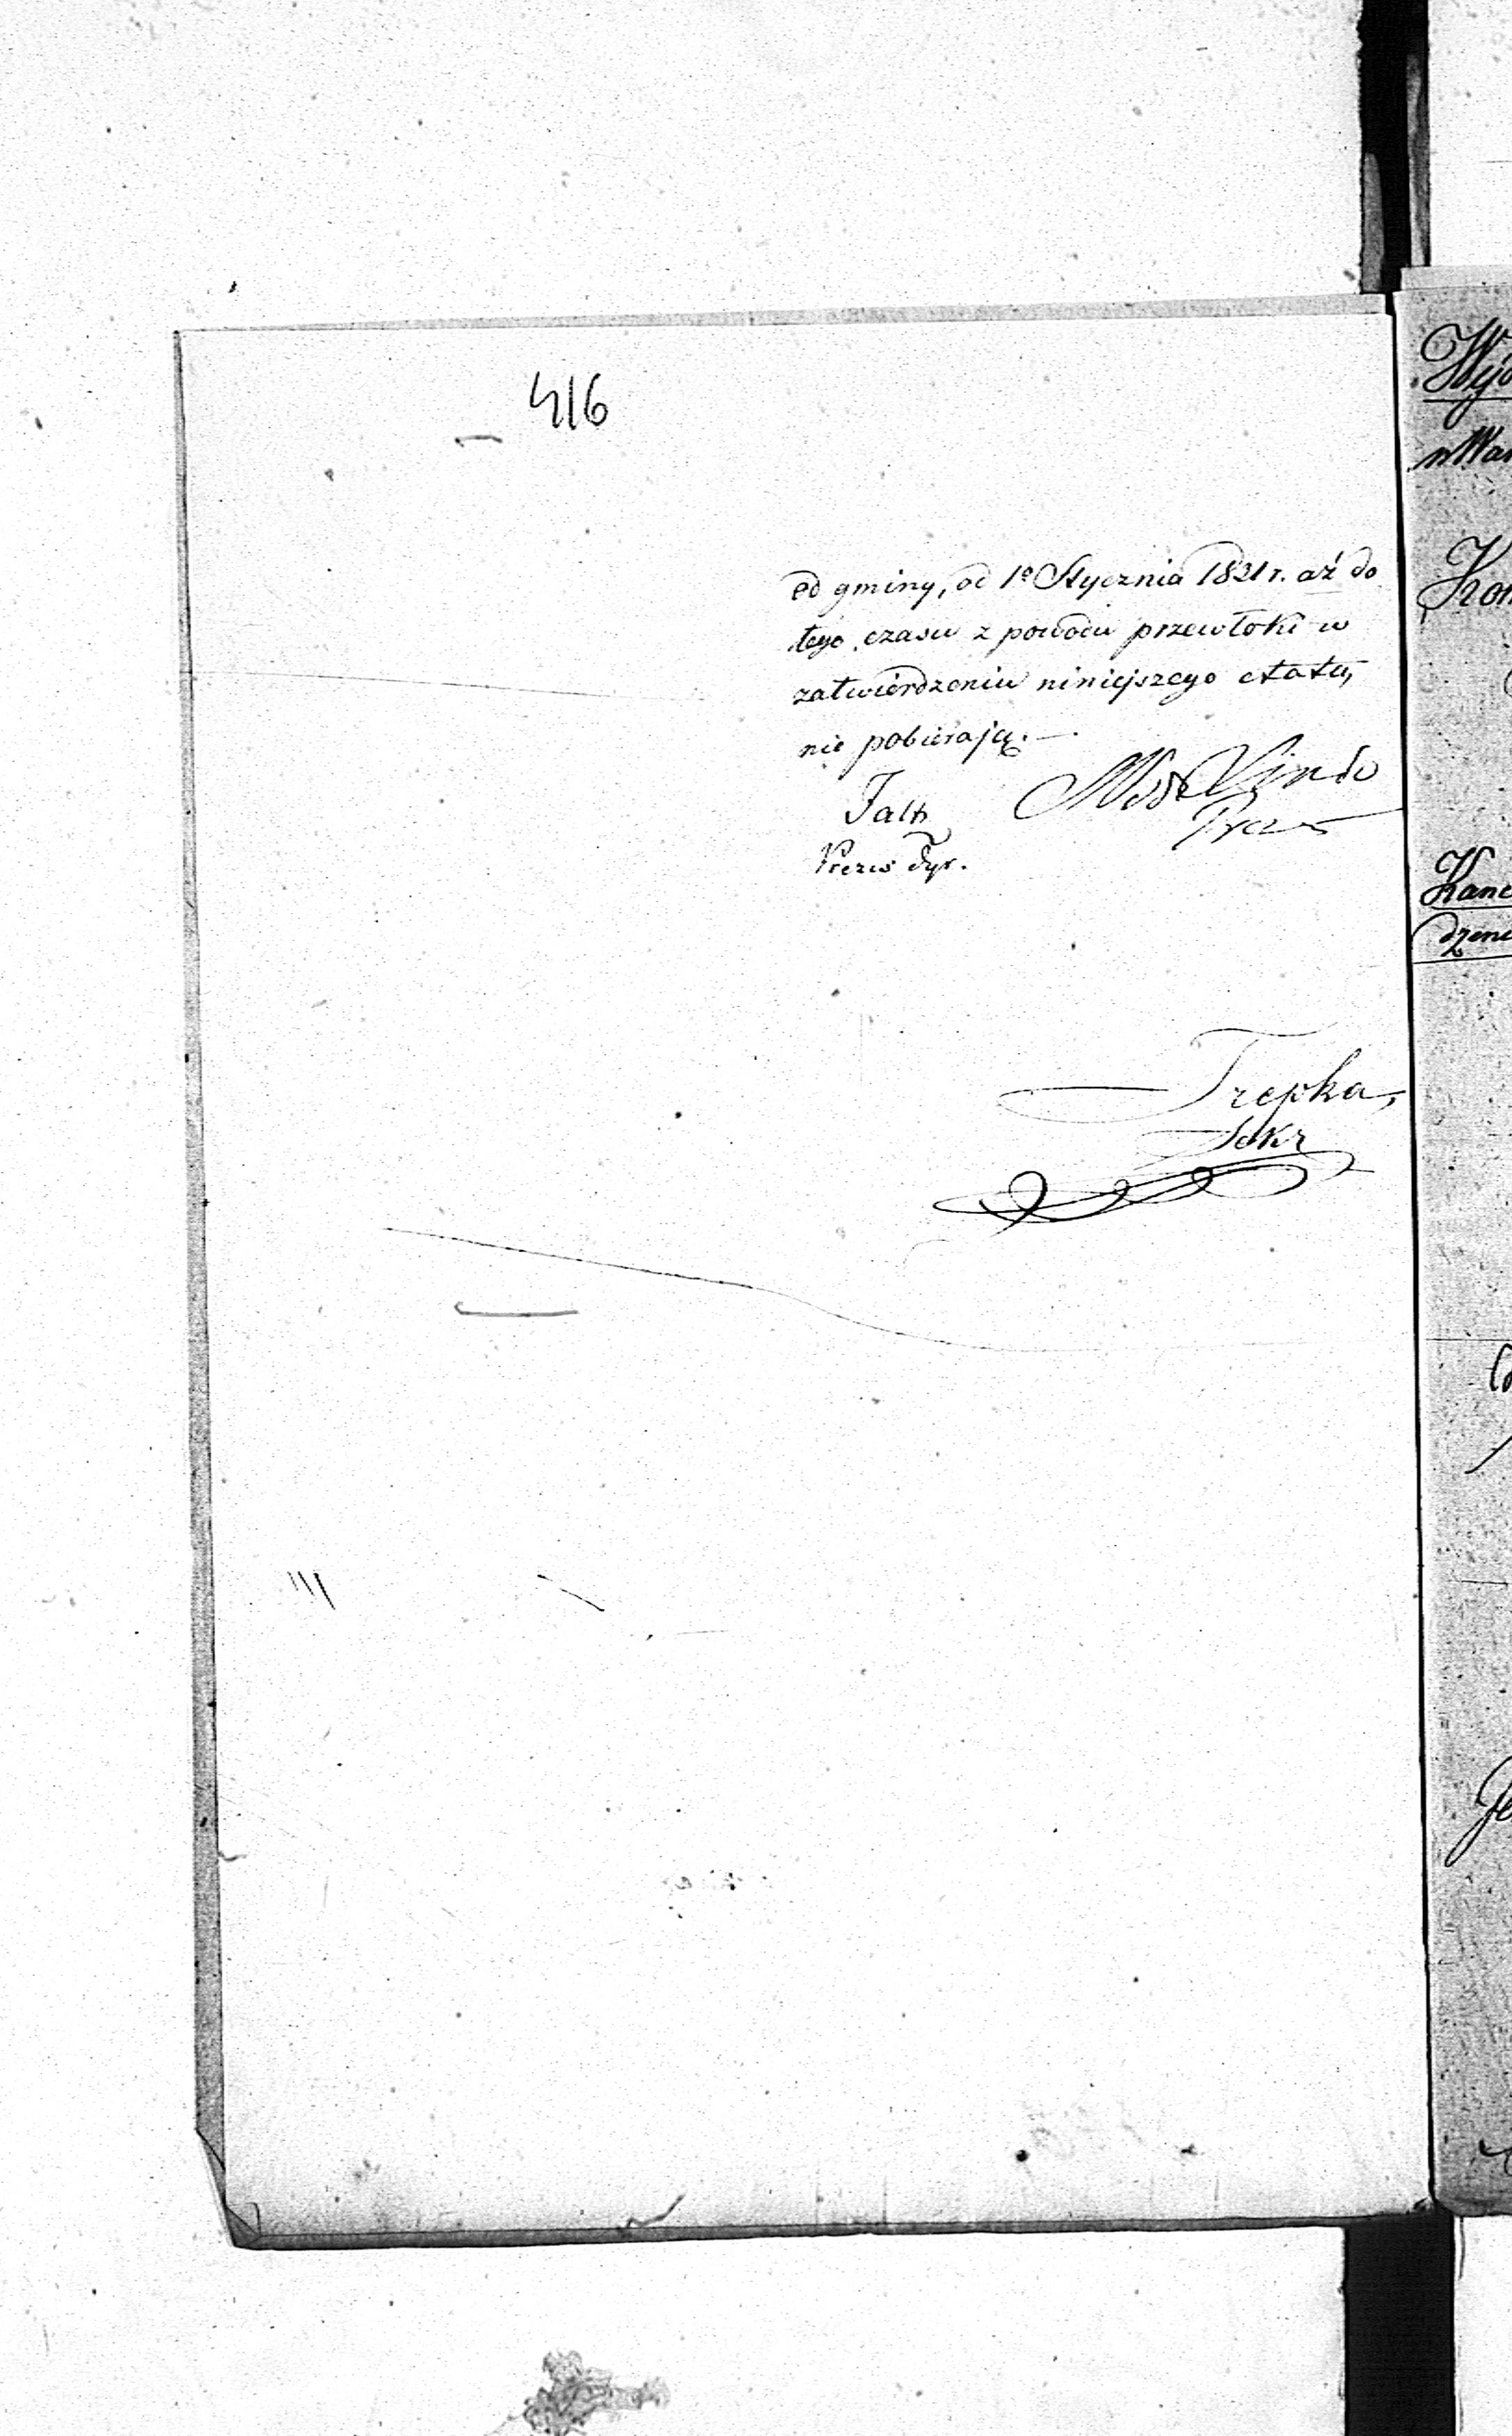 416
od gminy, od 1º Stycznia 1821 r. aż do
tego czasu z powodu przewłoki w
zatwierdzeniu niniejszego etatu,
nie pobierają. —
Prezes Dyr.
Trepka,
Sekr
Wyd
w War
Kom
Kanc
dzeni